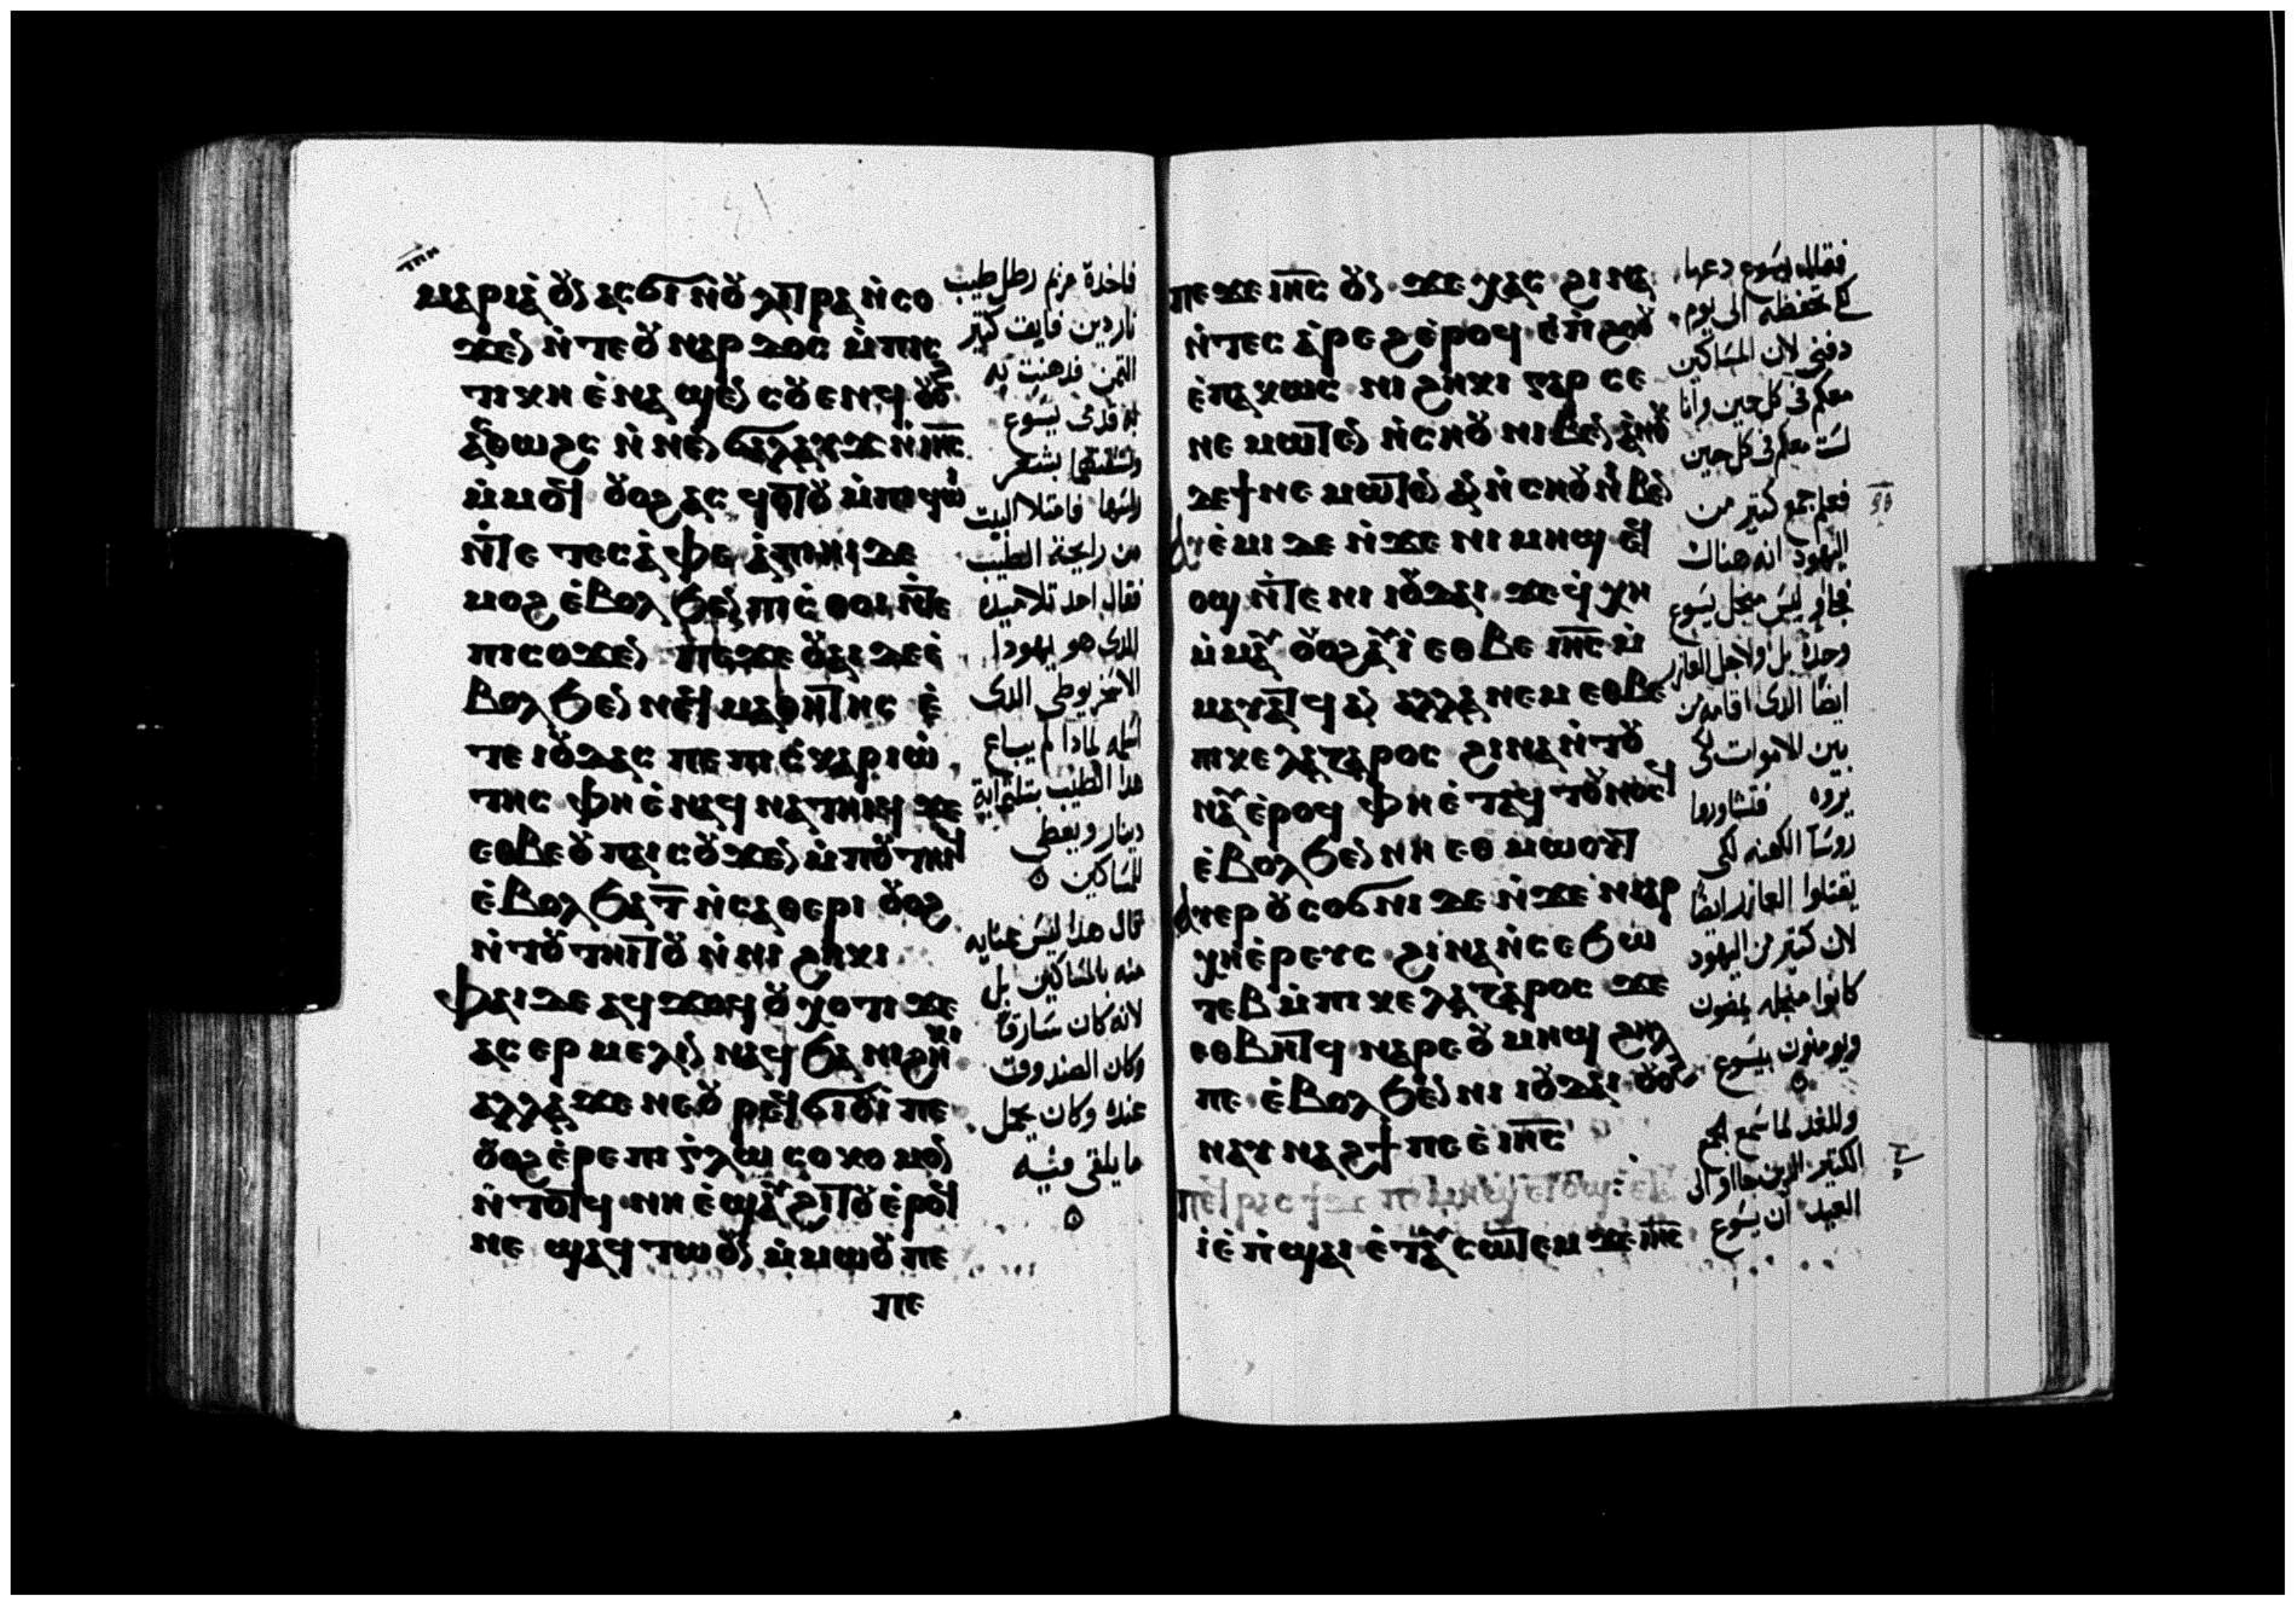 ⲧⲡⲏ
ⲙⲁⲣⲓⲁ̀ ⲟⲩⲛ ⲁⲥϭⲓ ⲛ̀ⲟⲩⲗⲓⲧⲣⲁ ⲛ̀ⲥⲟ
ϫⲉⲛ ⲛ̀ⲧⲉ ⲟⲩⲛⲁⲣⲇⲟⲥ ⲙ̀ⲡⲓⲥ
ⲧⲓⲕⲏ ⲉ̀ⲛⲁϣⲉⲛ ⲥⲟⲩⲉⲛϥ ⲟⲩⲟϩ
ⲁⲥⲑⲱϩⲥ ⲛ̀ⲛⲉⲛϭⲁⲗⲁⲩϫ ⲛ̀ⲓⲏ̅ⲥ̅
ⲙ̀ⲙⲟϥ ⲟⲩⲟϩ ⲁⲥϥⲟⲧⲟⲩ ⲙ̀ⲡⲓϥⲱⲓ
ⲛ̀ⲧⲉ ⲧⲉⲥⲁ̀ⲫⲉ ⲁ̀ⲡⲓⲏⲓ ⲇⲉ
ⲙⲟϩ ⲉ̀ⲃⲟⲗ ϧⲉⲛ ⲡⲓⲥ̀ⲑⲟⲓ ⲛ̀ⲧⲉ
ⲡⲓⲥⲟϫⲉⲛ ⲡⲉϫⲉ ⲟⲩⲁⲓ ⲇⲉ ⲉ̀
ⲃⲟⲗ ϧⲉⲛ ⲛⲉϥⲙⲁⲑⲏⲧⲏⲥ ⲉ̀
ⲧⲉ ⲓⲟⲩⲇⲁⲥ ⲡⲉ ⲡⲓⲥ̀ⲕⲁⲣⲓⲱ
ⲧⲏⲥ ⲫⲏ ⲉ̀ⲛⲁϥⲛⲁⲧⲏⲓϥ ϫⲉ
ⲉⲑⲃⲉ ⲟⲩ ⲡⲁⲓⲥⲟϫⲉⲛ ⲙ̀ⲡⲟⲩⲧⲏⲓϥ
ⲉ̀ⲃⲟⲗ ϧⲁ ⲧ̅ ⲛ̀ⲥⲁⲑⲉⲣⲓ ⲟⲩⲟϩ
ⲛ̀ⲧⲟⲩⲧⲏⲓⲧⲟⲩ ⲛ̀ⲛⲓϩⲏⲕⲓ
ⲫⲁⲓ ⲇⲉ ⲁϥϫⲟϥ ⲟⲩⲭ ⲟⲧⲓ ϫⲉ
ⲁⲥⲉⲣⲙⲉⲗⲓⲛ ⲛⲁϥ ϧⲁ ⲛⲓϩⲏⲕⲓ
ⲁⲗⲗⲁ ϫⲉ ⲛⲉ ⲟⲩⲣⲉϥϭⲓⲟⲩⲓ ⲡⲉ
ⲟⲩⲟϩ ⲉ̀ⲣⲉ ⲡⲓⲅⲗⲱⲥⲟⲕⲟⲙⲟⲛ
ⲛ̀ⲧⲟⲧϥ ⲛⲏ ⲉ̀ϣⲁⲩϩⲓⲧⲟⲩ ⲉ̀ⲣⲟϥ
ⲛⲉ ϣⲁϥⲧⲱⲟⲩⲛ ⲙ̀ⲙⲱⲟⲩ ⲡⲉ
ⲡⲉ
فاخدة مريم رطل طيب
ناردين فايق كتير
التمن فدهنت به
به قدمى يسوع
ونشفتهما بشعر
راسها فامتلا البيت
من رايحة الطيب
فقال احد تلاميده
الدى هو يهودا
الاسخريوطى الدى
اسلمه لمادا لم يباع
هدا الطيب بتلتماية
دينار ويعطى
للمساكين
قال هدا ليس عنايه
منه بالمساكين بل
لانه كان سارقا
وكان الصندوق
عنده وكان يحمل
ما يلقى فيه
ⲡⲉϫⲉ ⲓⲏ̅ⲥ̅ ⲟⲩⲛ ϫⲉ ⲭⲁⲥ ϩⲓⲛⲁ
ⲛ̀ⲧⲉⲥⲁ̀ⲣⲉϩ ⲉ̀ⲣⲟϥ ⲉ̀ⲡⲓⲉϩⲟⲟⲩ
ⲉ̀ⲡⲁⲕⲱⲥ ⲛⲓϩⲏⲕⲓ ⲅⲁⲣ ⲥⲉ
ⲛⲉⲙⲱⲧⲉⲛ ⲛ̀ⲥⲏⲟⲩ ⲛⲓⲃⲉⲛ ⲁ̀ⲛⲟⲕ
ⲇⲉ ϯⲛⲉⲙⲱⲧⲉⲛ ⲁⲛ ⲛ̀ⲥⲏⲟⲩ ⲛⲓⲃⲉⲛ
ⲁⲩⲉ̀ⲙⲓ ⲇⲉ ⲛ̀ϫⲉ ⲛⲓⲙⲏϣ ⲉⲧ
ⲟϣ ⲛ̀ⲧⲉ ⲛⲓⲓⲟⲩⲇⲁⲓ ϫⲉ ϥ̀ⲭⲏ
ⲙ̀ⲙⲁⲩ ⲟⲩⲟϩ ⲁⲩⲓ̀ ⲉⲑⲃⲉ ⲓⲏ̅ⲥ̅ ⲙ̀
ⲙⲁⲩⲁⲧϥ ⲁⲛ ⲁⲗⲗⲁ ⲛⲉⲙ ⲉⲑⲃⲉ
ⲡⲓⲕⲉⲗⲁⲍⲁⲣⲟⲥ ϩⲓⲛⲁ ⲛ̀ⲧⲟⲩ
ⲛⲁⲩ ⲉ̀ⲣⲟϥ ⲫⲏ ⲉ̀ⲧⲁϥⲧⲟⲩⲛⲟⲥϥ
ⲉ̀ⲃⲟⲗ ϧⲉⲛ ⲛⲏ ⲉⲑⲙⲱⲟⲩⲧ
ⲁⲩⲉⲣⲟⲩⲥⲟϭⲛⲓ ⲇⲉ ⲛ̀ϫⲉ ⲛⲓⲁⲣ
ⲭⲏⲉ̀ⲣⲉⲩⲥ ϩⲓⲛⲁ ⲛ̀ⲥⲉϧⲱ
ⲧⲉⲃ ⲙ̀ⲡⲓⲕⲉⲗⲁⲍⲁⲣⲟⲥ ϫⲉ
ⲉⲑⲃⲏⲧϥ ⲛⲁⲣⲉ ⲟⲩⲙⲏϣ ϩⲏⲗ
ⲡⲉ ⲉ̀ⲃⲟⲗ ϧⲉⲛ ⲛⲓⲓⲟⲩⲇⲁⲓ ⲟⲩⲟϩ
ⲛⲁⲩⲛⲁϩϯ ⲡⲉ ⲉ̀ⲓⲏ̅ⲥ̅
ⲡⲉϥⲣⲁⲥϯ ⲇⲉ ⲡⲓⲙⲏϣ ⲉⲧⲟϣ ⲉⲧⲁϥ
ⲓ̀ ⲉ̀ⲡ̀ϣⲁⲓ ⲉ̀ⲧⲁⲩⲥⲱⲧⲉⲙ ϫⲉ ⲓⲏ̅ⲥ̅
فقال يسوع دعها
لكى تحفظه الى يوم
دفنى لان المساكين
معكم فى كل حين وانا
لست معكم فى كل حين
فعلم جمع كتير من
اليهود انه هناك
فجاو ليس من اجل يسوع
وحده بل ولاجل العازر
ايضا الدى اقامه من
بين الاموات لكى
يروه فتشاوروا
روسا الكهنه لكى
يقتلوا العازر ايضا
لان كتير من اليهود
كانوا من اجله يمضون
ويومنون بيسوع
وللغد لما سمع الجمع
الكتير الدين جااو الى
العيد ان يسوع